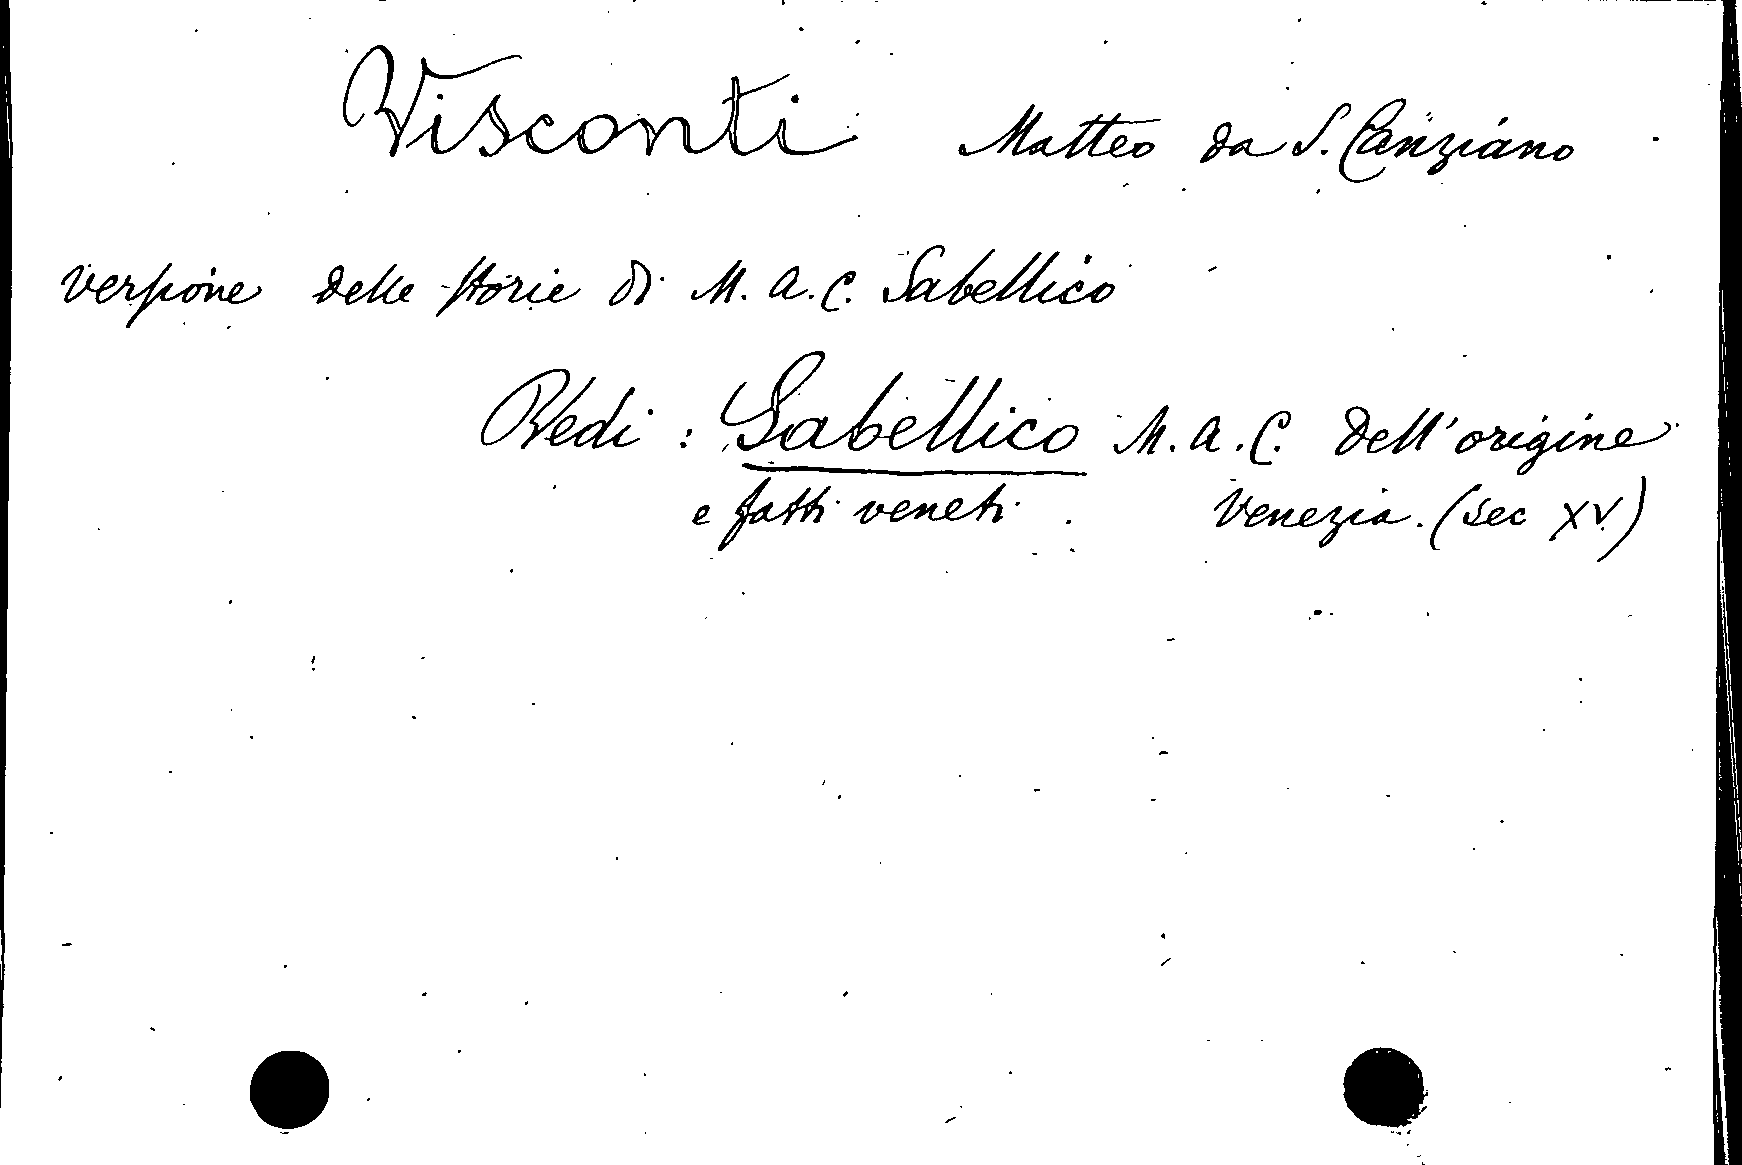 Visconti Matteo da S. Canziano
versione delle storie di M. A. C. Sabellico
Vedi : Sabellico M. A. C. Dell'origine
e fatti veneti . Venezia. (sec XV)